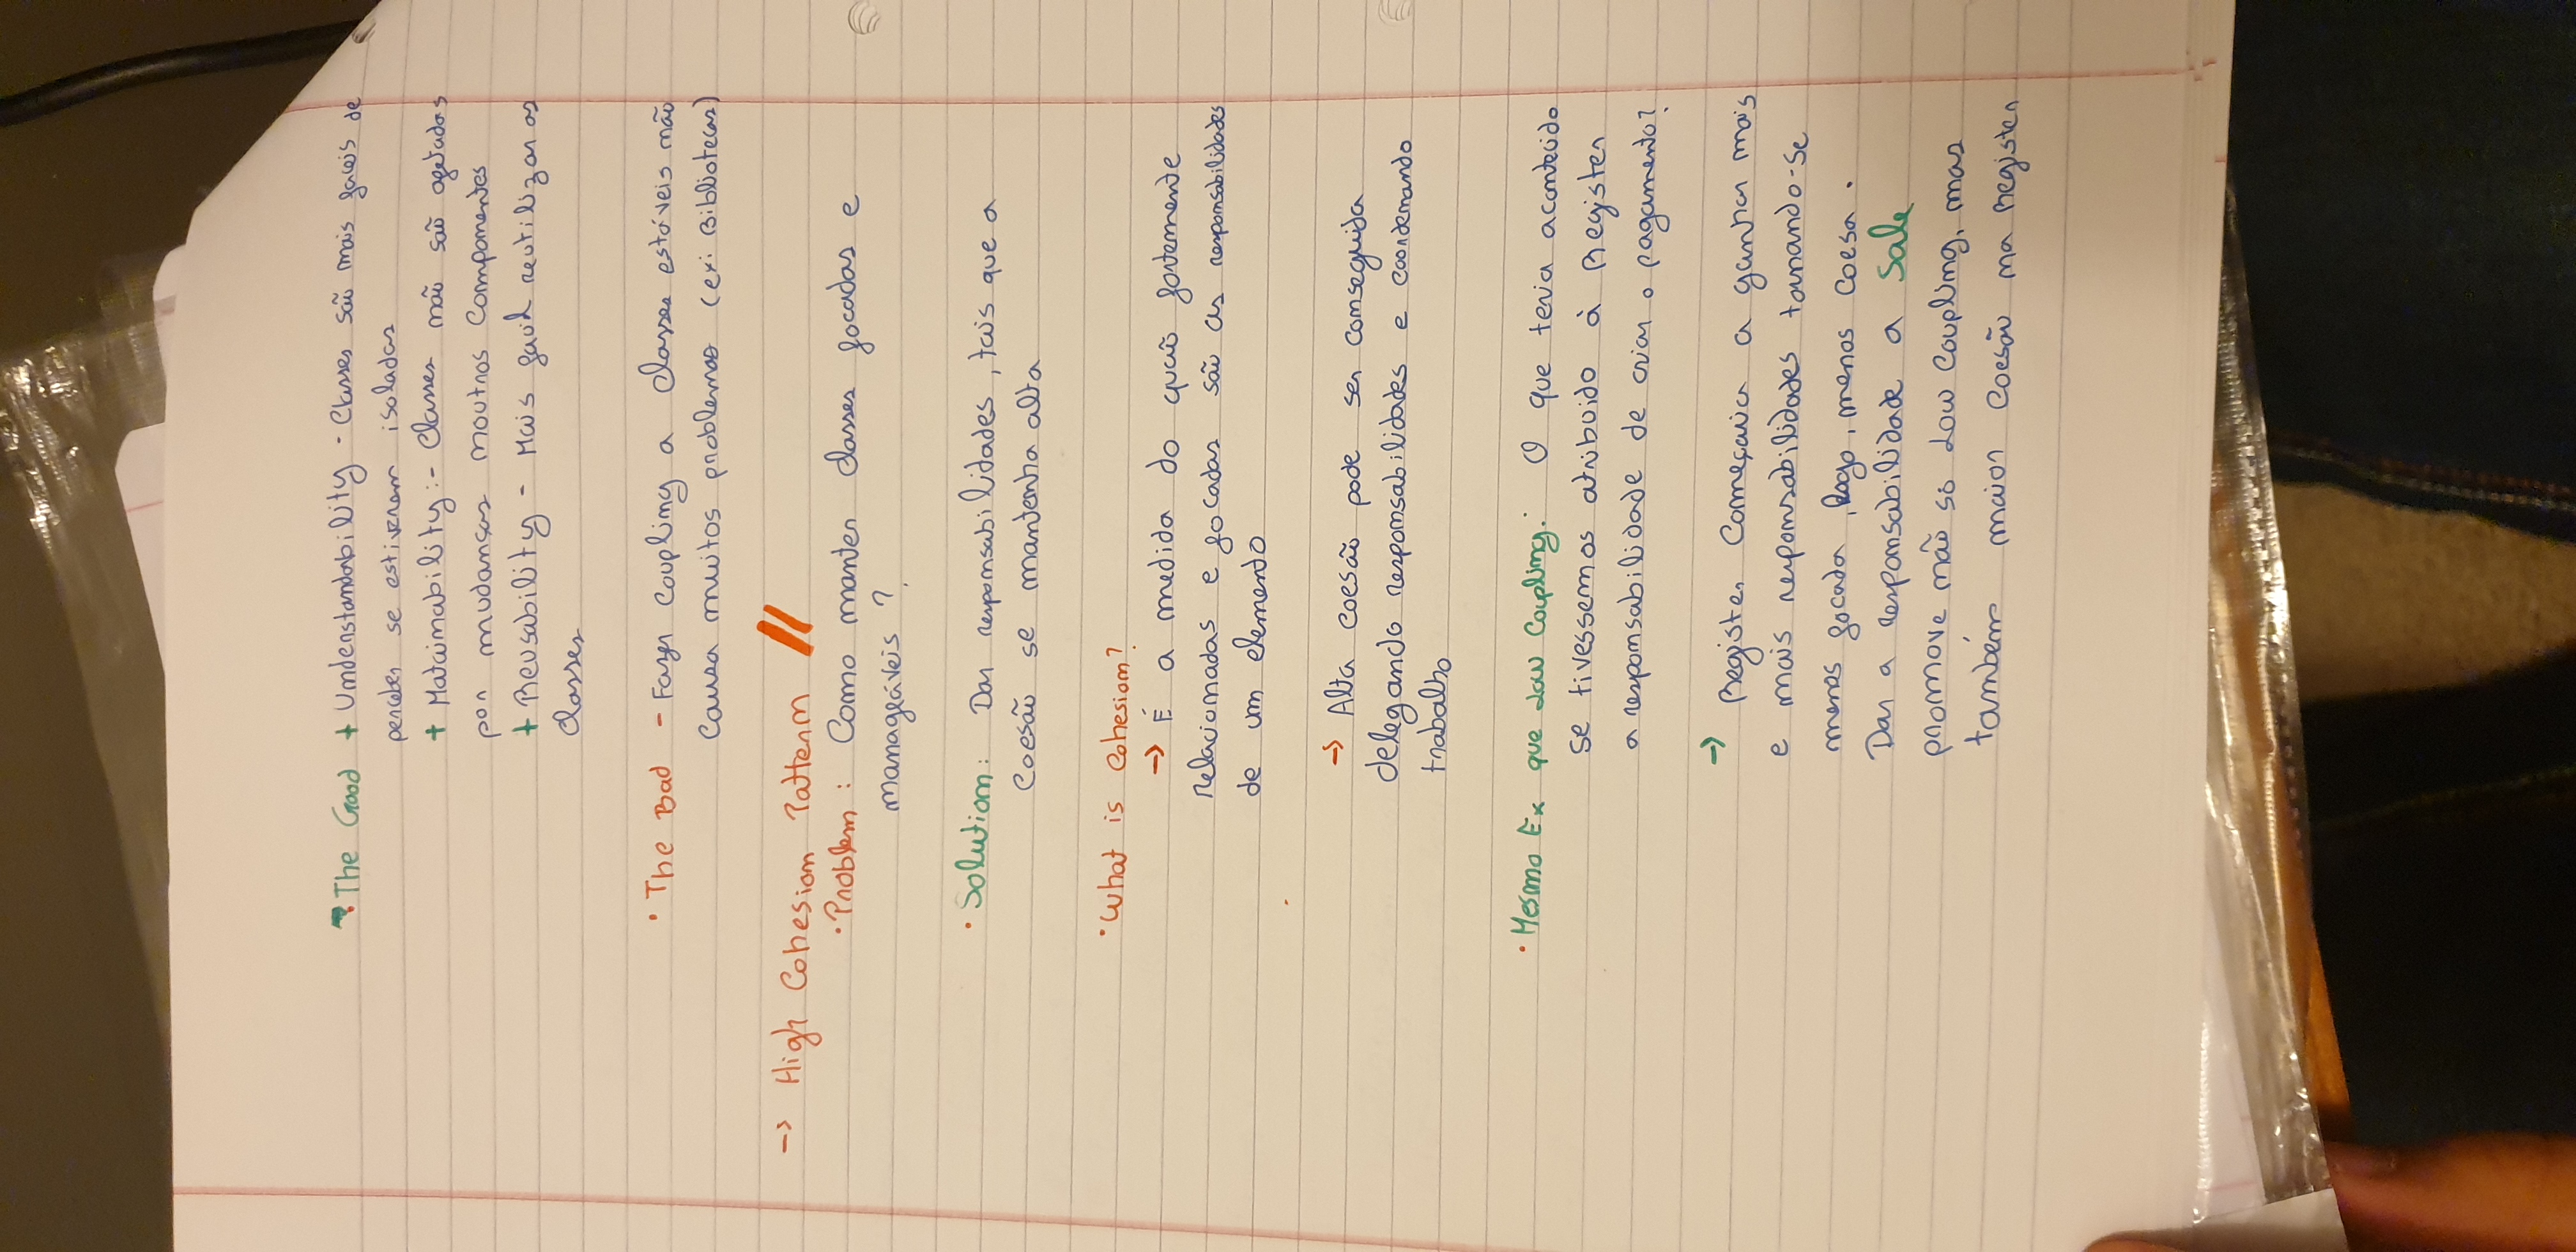 • The Good + Understandability - Classes são mais faceis de
perceber se estiverem isoladas
+ Matainability: - Classes não são afetadas
por mudanças noutros componentes
+ Reusability - Mais facil reutilizar as
classes
• The Bad - Fazer coupling a classes estáveis não
causa muitos problemas (ex: Bibliotecas)
-> High Cohesion Pattern //
• Problem : Como manter classes focadas e
manageáveis ?
• Solution: Dar responsabilidades, tais que a
coesão se mantenha alta
• What is Cohesion?
-> É a medida do quão fortemente
relacionadas e focadas são as responsabilidades
de um elemento
-> Alta coesão pode ser conseguida
delegando responsabilidades e coordenando
trabalho
• Mesmo Ex que Low Coupling: O que teria acontecido
se tivessemos atribuido à Register
a responsabilidade de criar o pagamento?
-> Register começaria a ganhar mais
e mais responsabilidades tornando-se
menos focada, logo, menos coesa.
Dar a responsabilidade a Sale
promove não só Low Coupling, mas
também maior coesão na Register